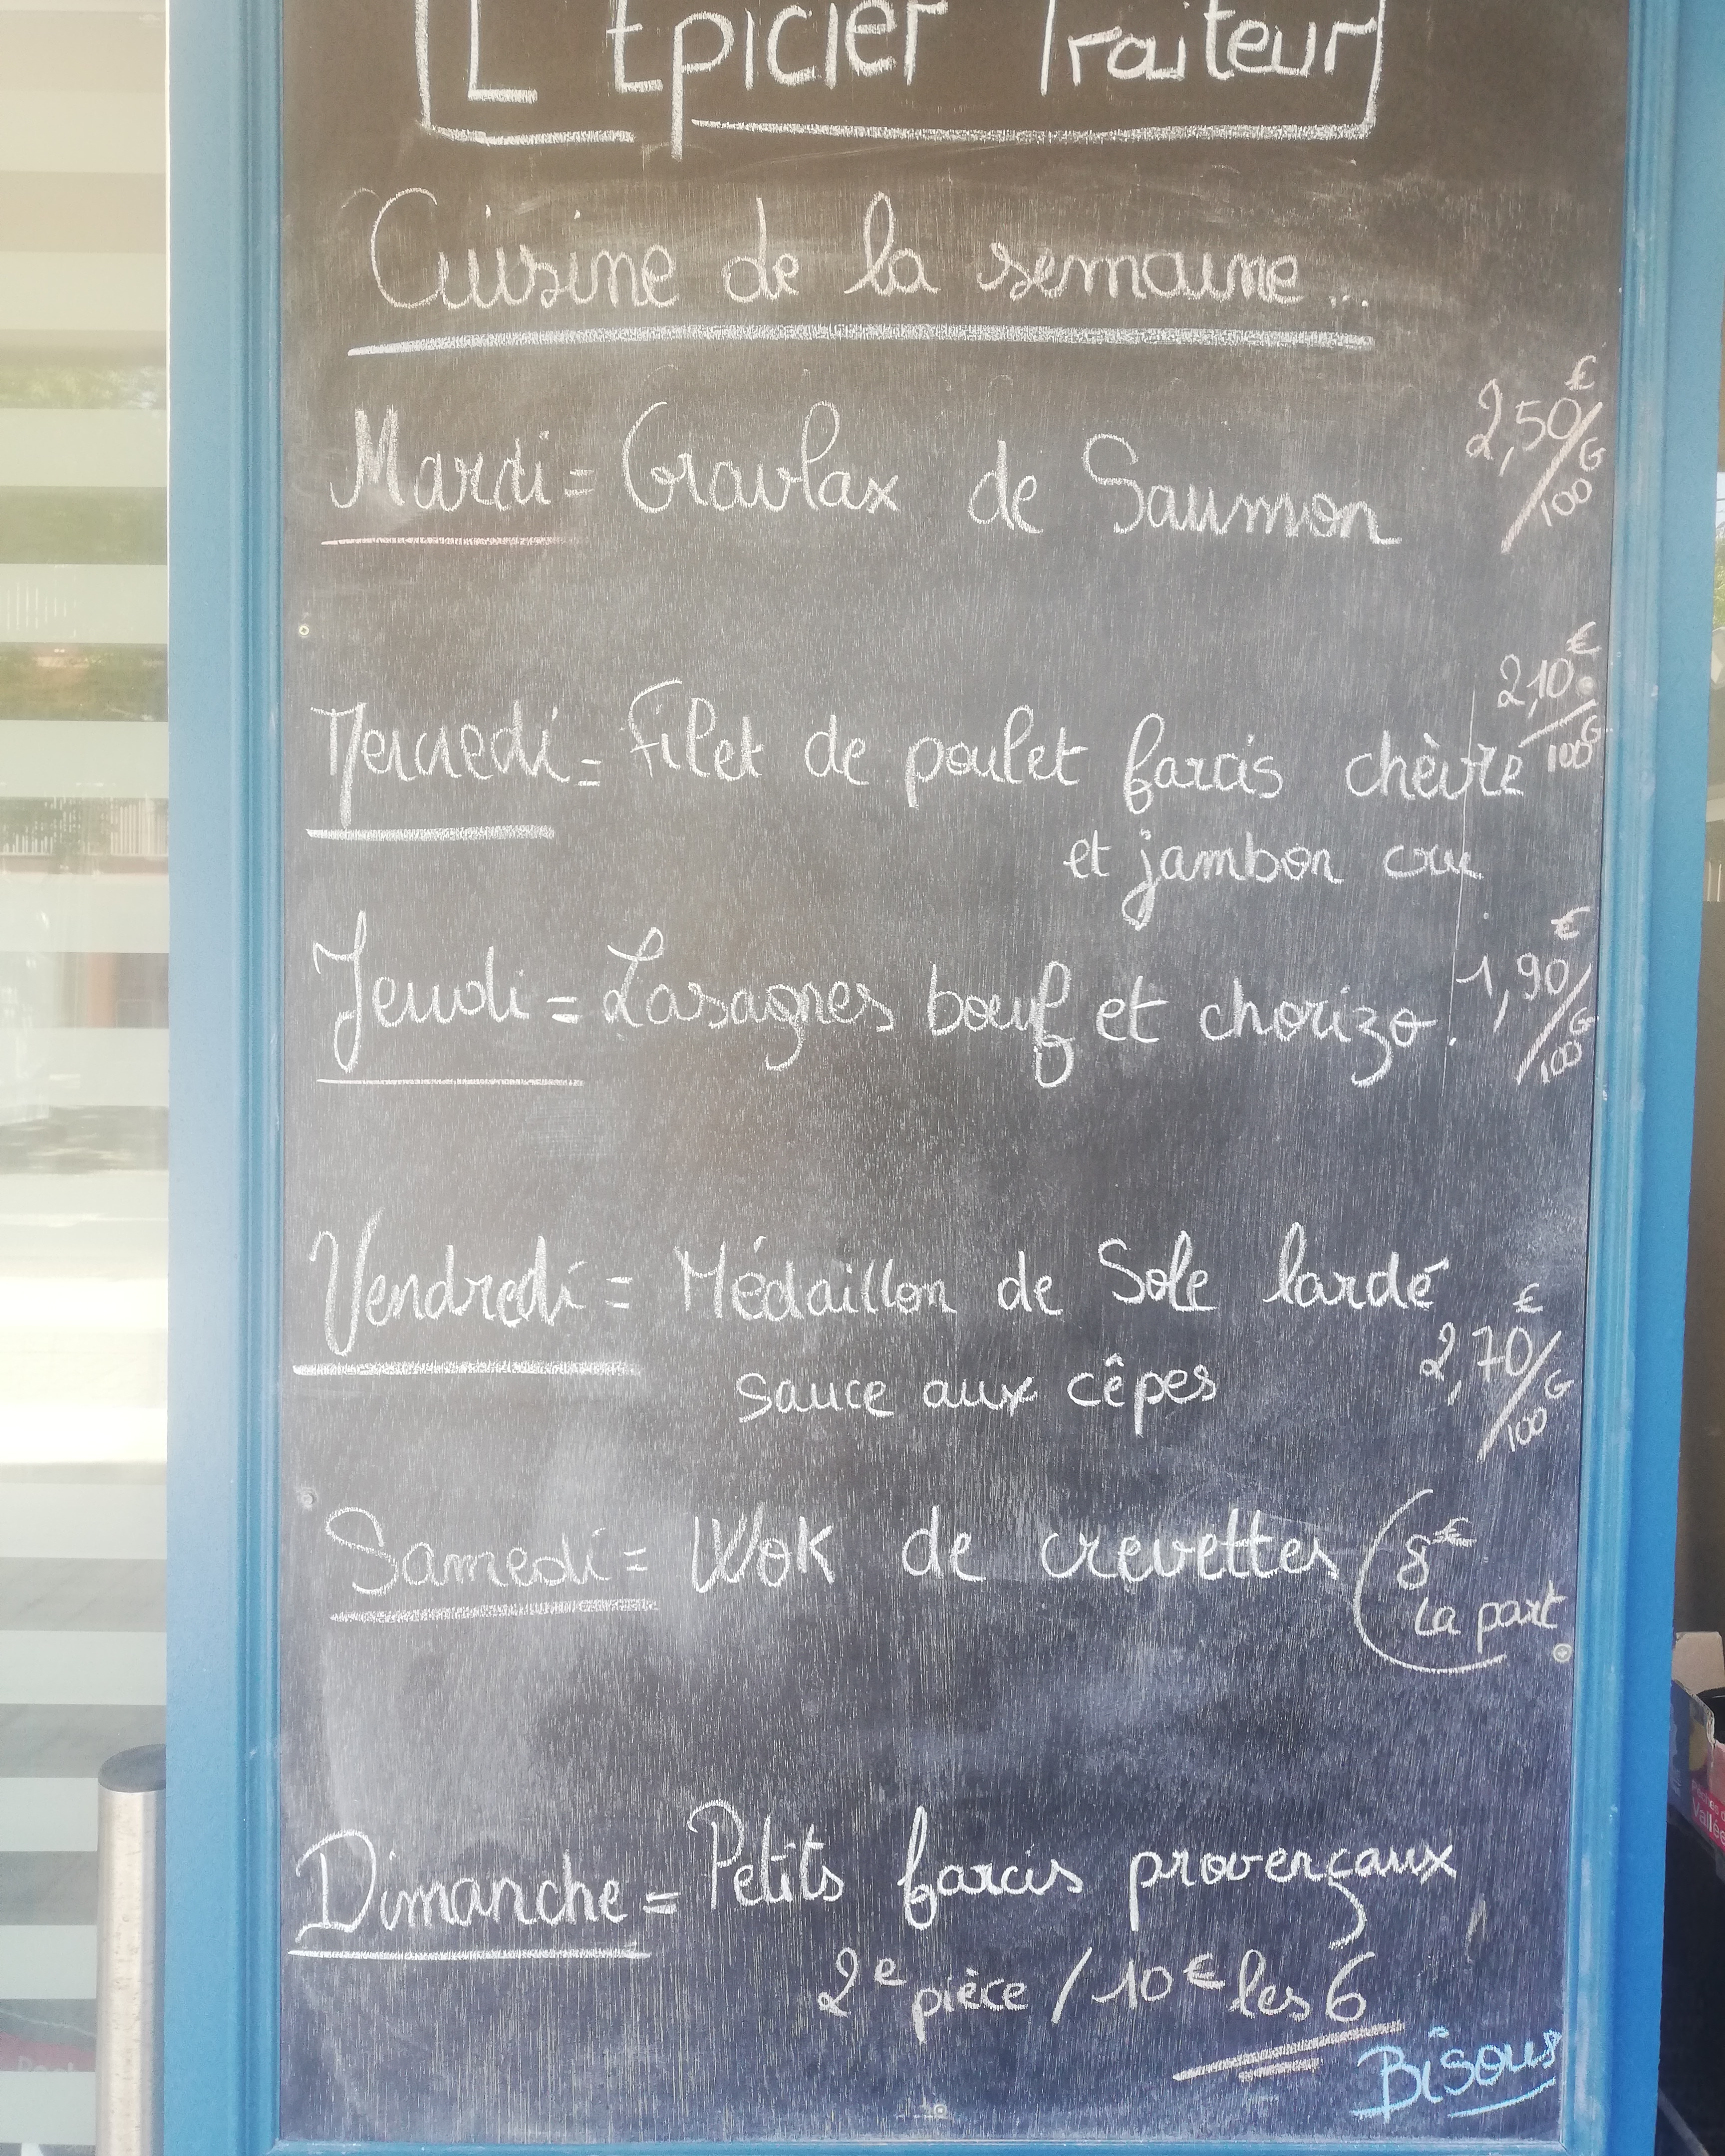 L'Epicier Traiteur
Cuisine de la semaine...
Mardi = Gravlax de Saumon 2,50€/100G
Mercredi = Filet de poulet farcis chèvre 2,10€/100G
et jambon cru
Jeudi = Lasagnes boeuf et chorizo. 1,90€/100G
Vendredi = Médaillon de Sole lardé
sauce aux cêpes 2,70€/100G
Samedi = Wok de crevettes (8€
la part
Dimanche = Petits farcis provençaux
2e pièce / 10€ les 6
Bisous